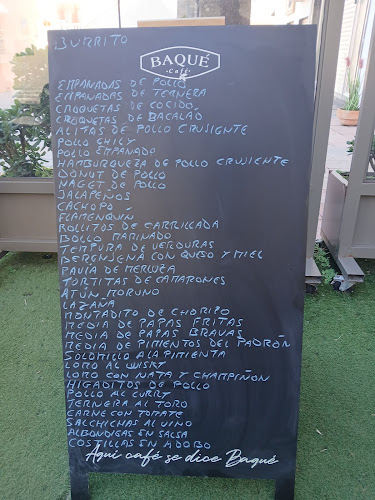 BURRITO
BAQUÉ
Café
EMPANADAS DE POLLO
EMPANADAS DE TERNERA
CROQUETAS DE COCIDO
CROQUETAS DE BACALAO
ALITAS DE POLLO CRUSIENTE
POLLO CHILY
POLLO EMPANADO
HAMBURGUEZA DE POLLO CRUJIENTE
DONUT DE POLLO
NAGGET DE POLLO
JALAPEÑOS
CACHOPO
FLAMENQUIN
ROLLITOS DE CARRILLADA
POLLO MARINADO
TEMPURA DE VERDURAS
BERENJENA CON QUESO Y MIEL
PAVIA DE MERLUZA
TORTITAS DE CAMARONES
ATÚN MORUNO
LAZANA
MONTADITO DE CHORIPO
MEDIA DE PAPAS FRITAS
MEDIA DE PAPAS BRAVAS
MEDIA DE PIMIENTOS DEL PADRÓN
SOLOMILLO A LA PIMIENTA
LOMO AL WISKY
LOMO CON NATA Y CHAMPIÑON
HIGADITOS DE POLLO
POLLO AL CURRY
TERNERA AL TORO
CARNE CON TOMATE
SALCHICHAS AL VINO
ALBONDIGAS EN SALSA
COSTILLAS EN ADOBO
Aquí café se dice Baqué